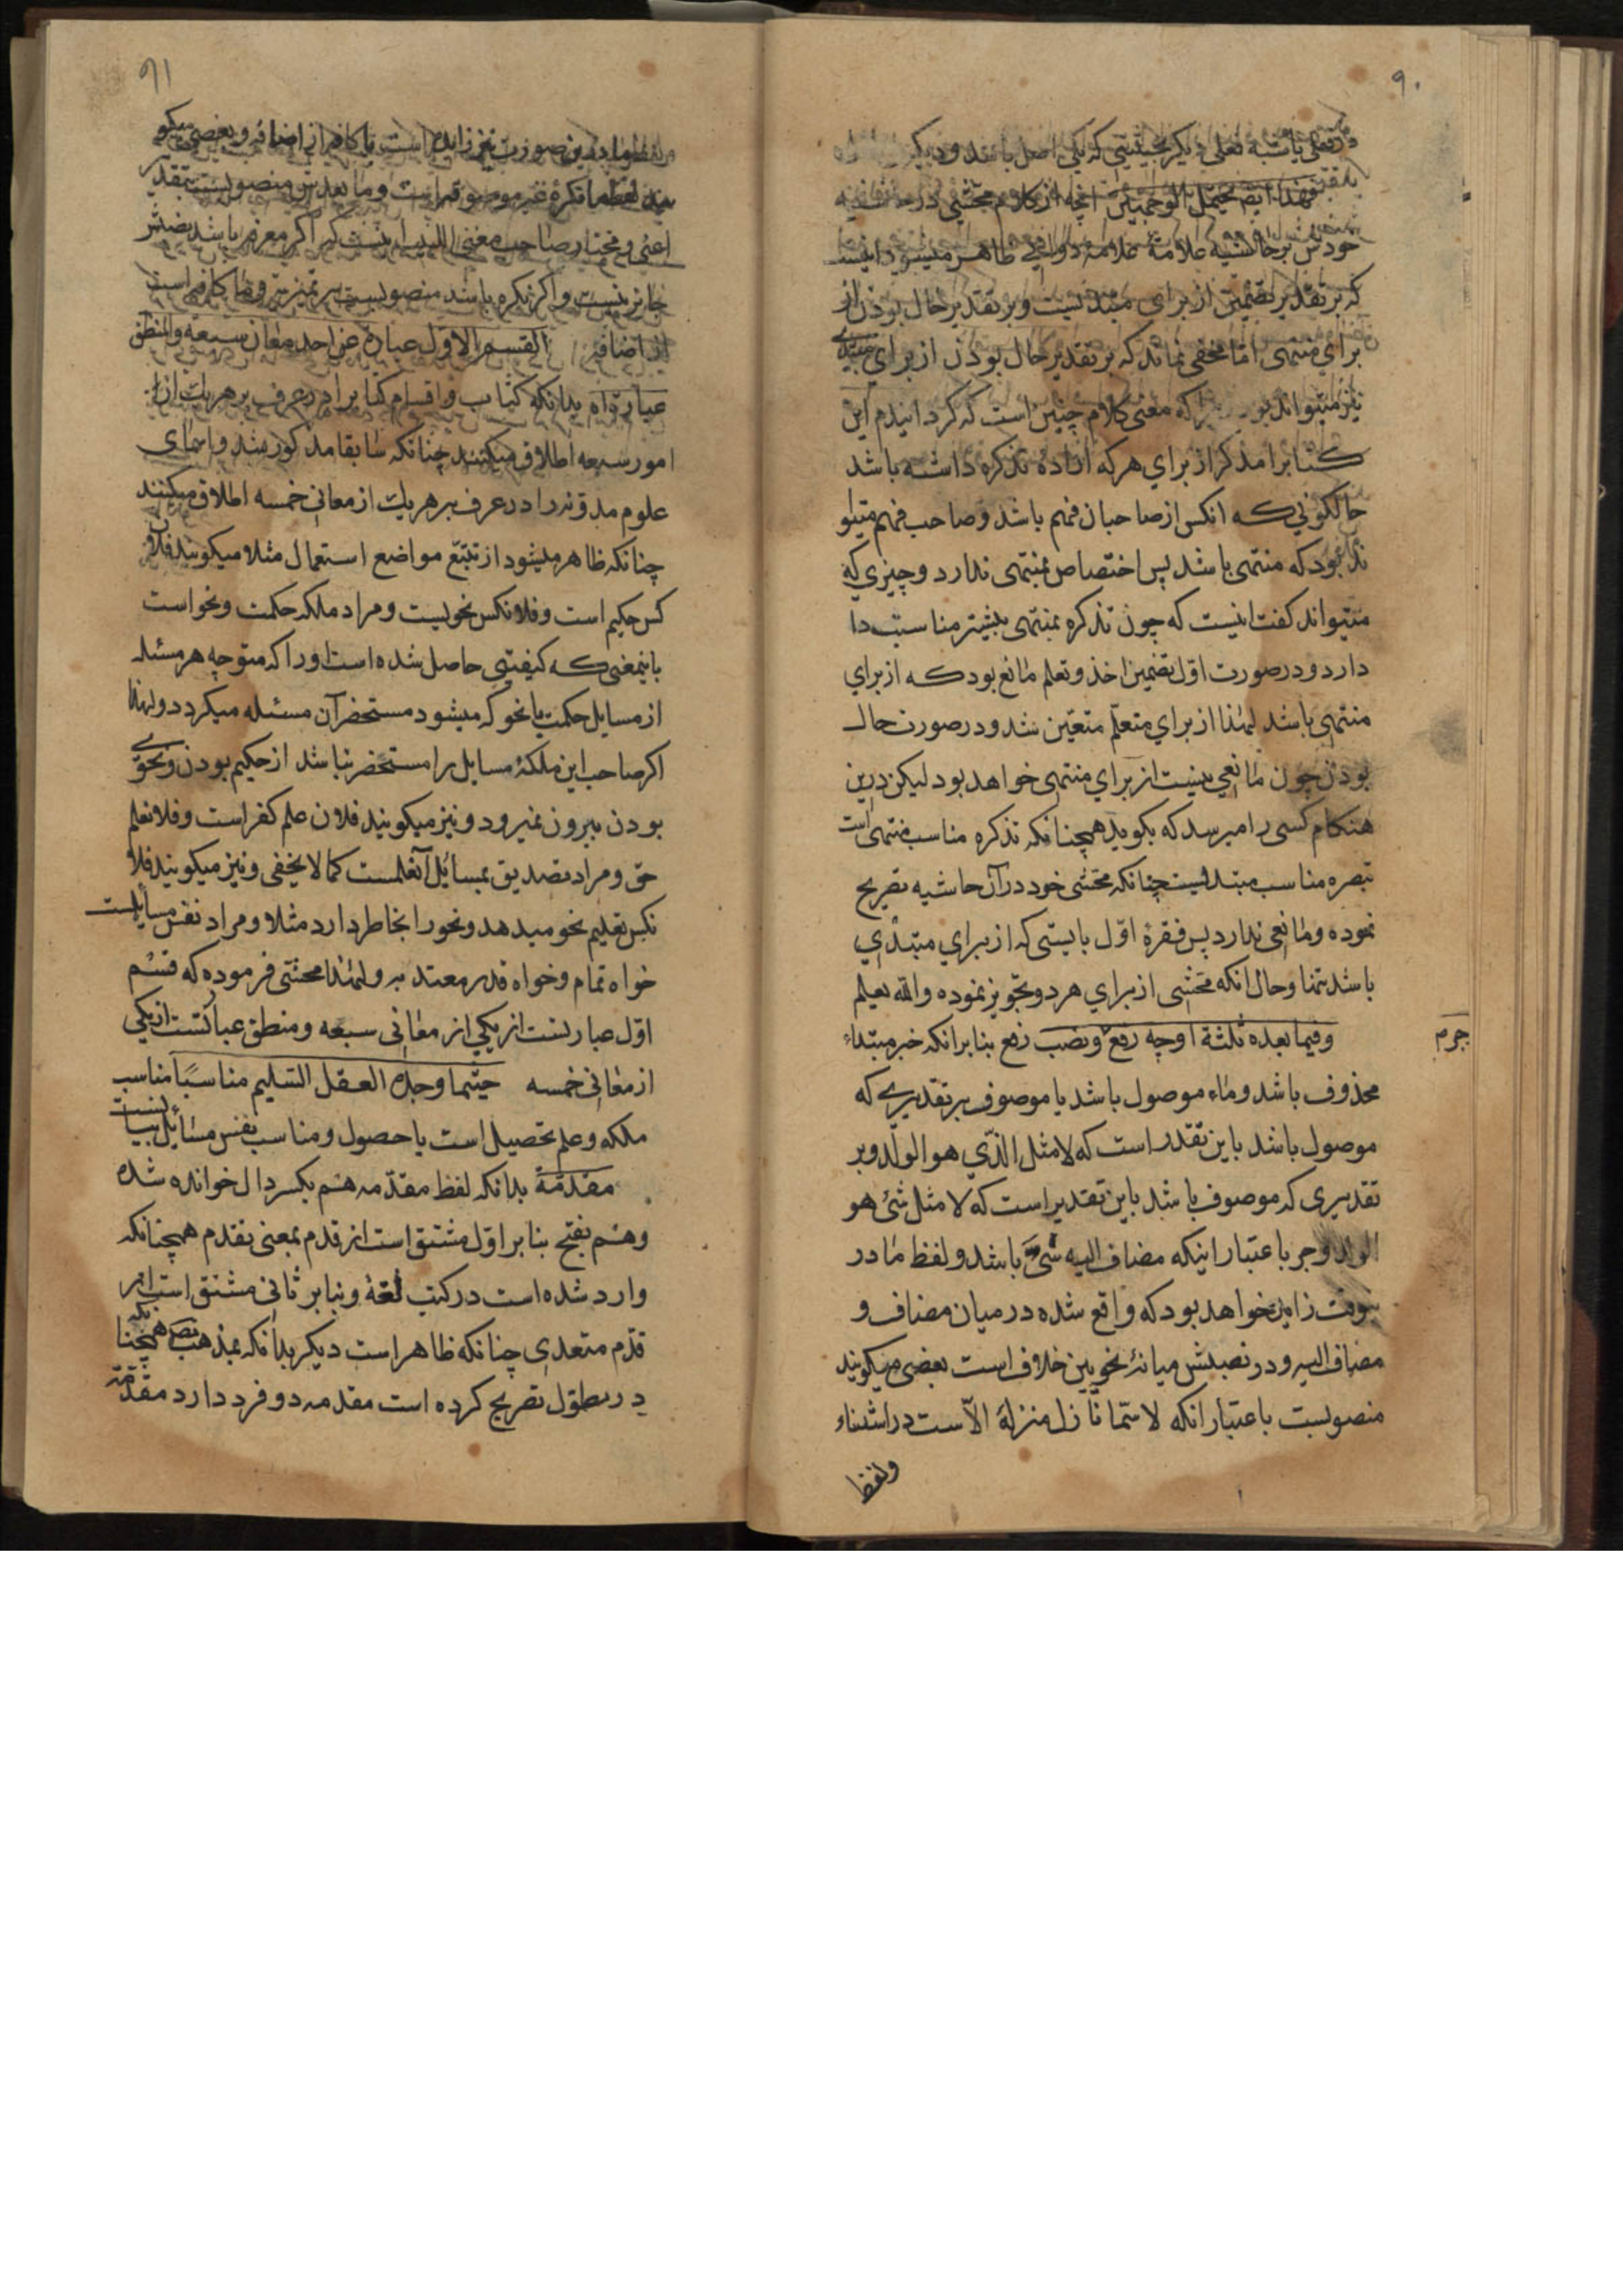 ۹۰
فعلی دیگر بحیثیتی که یکی اصل باشد و دیگر
فهذا ایضا یحتمل الوجهین آنچه از کلام محشی در حاشیه
خودش بر حاشیه علامهٔ دوانی ظاهر میشود اینست
که بر تقدیر تضمین از برای مبتدیست و بر تقدیر حال بودن از
برای منتهی اما مخفی نماند که بر تقدیر حال بودن از برای مبتدی
نیز میتواند بود که معنی کلام چنین است که کردانیدم این
کتابرا مذکر از برای هر که اراده تذکره داشته باشد
حالکونی که آنکس از صاحبان فهم باشد و صاحب فهم میتوا
ند بود که منتهی باشد پس اختصاص بمنتهی ندارد و چیزی که
میتواند کفت اینست که چون تذکره بمنتهی بیشتر مناسبت دا
دارد و در صورت اوّل تضمین اخذ و تعلم مانع بود که از برای
منتهی باشد لهذا از برای متعلّم متعیّن شد و در صورت حال
بودن چون مانعی نیست از برای منتهی خواهد بود لیکن درین
هنکام کسی را میرسد که بکوید همچنانکه تذکره مناسب منتهی است
تبصره مناسب مبتدیست چنانکه محشی خود در آن حاشیه تصریح
نموده و مانعی ندارد پس فقرهٔ اوّل بایستی که از برای مبتدی
باشد تنها و حال آنکه محشی از برای هر دو تجویز نموده والله یعلم
وفیما بعده ثلثة اوجه رفع و نصب رفع بنابر انکه خبر مبتداء
جرم
محذوف باشد و ماء موصول باشد یا موصوف بر تقدیری که
موصول باشد باین تقدیر است که لا مثل الذّی هو الولد و بر
تقدیری که موصوف باشد باین تقدیر است که لا مثل شئ هو
الولد و جر باعتبار اینکه مضاف الیه سیّ باشد و لفظ ما در
زاید خواهد بود که واقع شده در میان مضاف و
مضاف الیه و در نصبش میانهٔ نحویین خلاف است بعضی میکویند
منصوبست باعتبار انکه لا سیّما نازل منزلهٔ الاّست در استثناء
ولفظ
۹۱
و لفظ ما درین صورت نیز زاید است یا کافه از اضافه و بعضی میکو
یند لفظ ما نکرهٔ غیر موصوفه است و ما بعدش منصوبست بتقدیر
اعنی و مختار صاحب مغنی اللبیب اینست که اکر معرفه باشد نصبش
جایز نیست و اکر نکره باشد منصوبست بر تمیزیت و ما کافه است
از اضافه القسم الاوّل عبارة عن احد معان سبعه والمنطق
عبارة اه بدانکه کتاب و اقسام کتابرا در عرف بر هر یک ازا
امور سبعه اطلاق میکنند چنانکه سابقا مذکور شد و اسمای
علوم مدوّنه را در عرف بر هر یک از معانی خمسه اطلاق میکنند
چنانکه ظاهر میشود از تتبّع مواضع استعمال مثلا میکویند فلان
کس حکیم است و فلانکس نحویست و مراد ملکه حکمت و نحو است
باینمعنی که کیفیتی حاصل شده است او را که متوجه هر مسئله
از مسایل حکمت یا نحو که میشود مستحضر آن مسئله میکردد و لهذا
اکر صاحب این ملکهٔ مسایل را مستحضر نباشد از حکیم بودن و نحوی
بودن بیرون نمیرود و نیز میکویند فلان علم کفر است و فلانعلم
حق و مراد تصدیق بمسایل آنعلمست کما لا یخفی و نیز میکویند فلا
نکس تعلیم نحو میدهد و نحو را بخاطر دارد مثلا و مراد نفس مسایلست
خواه تمام و خواه قدر معتد به و لهذا محشی فرموده که قسم
اوّل عبارتست از یکی از معانی سبعه و منطق عبارتست از یکی
از معانی خمسه حیثما وجده العقل السلیم مناسبًا مناسب
ملکه و علم تحصیل است یا حصول و مناسب نفس مسایل بیانست
مقدّمة بدانکه لفظ مقدّمه هم بکسر دال خوانده شده
و هم بفتح بنابر اوّل مشتق است از قدم بمعنی تقدم همچنانکه
وارد شده است در کتب لغة و بنابر ثانی مشتق است از
قدّم متعدی چنانکه ظاهر است دیکر بدانکه بمذهب مص همچنانکه
در مطوّل تصریح کرده است مقدمه دو فرد دارد مقدّمهٔ